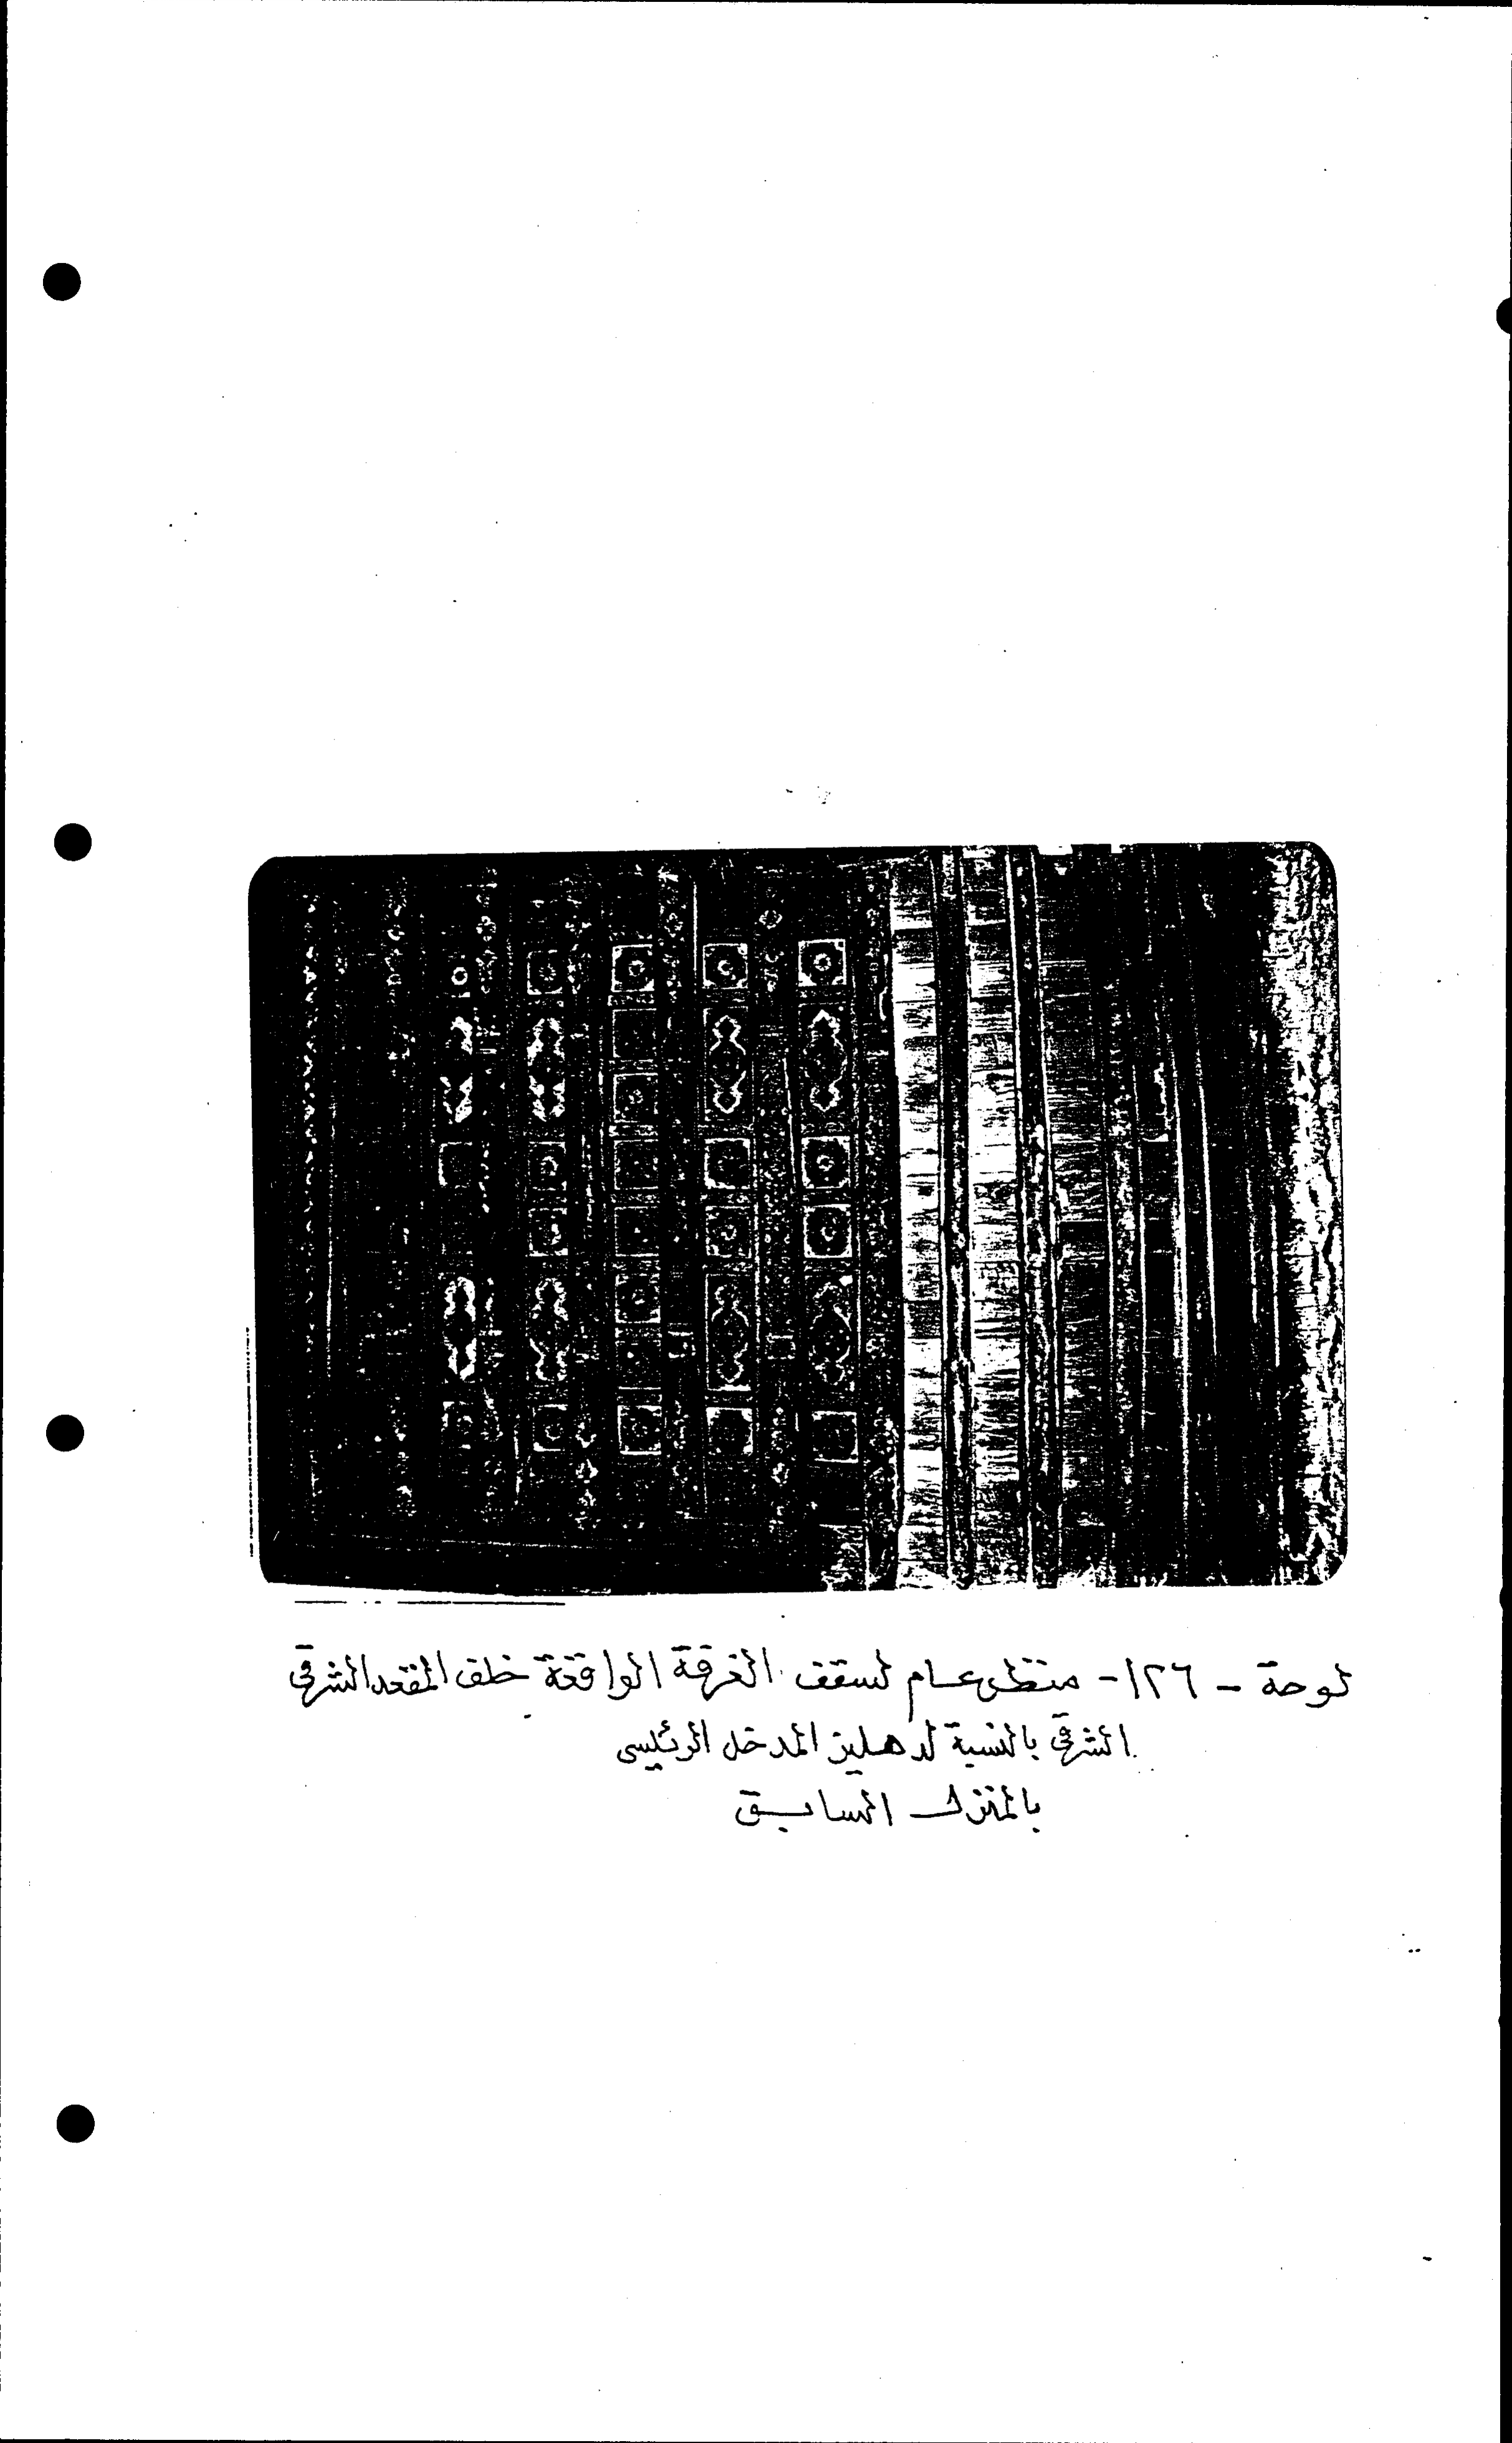 لوحة - ١٢٦ - منظر عام لسقف الغرفة الواقعة خلف المقعد الشرقى
الشرقى بالنسبة لدهليز المدخل الرئيسى
بالمنزل السابق